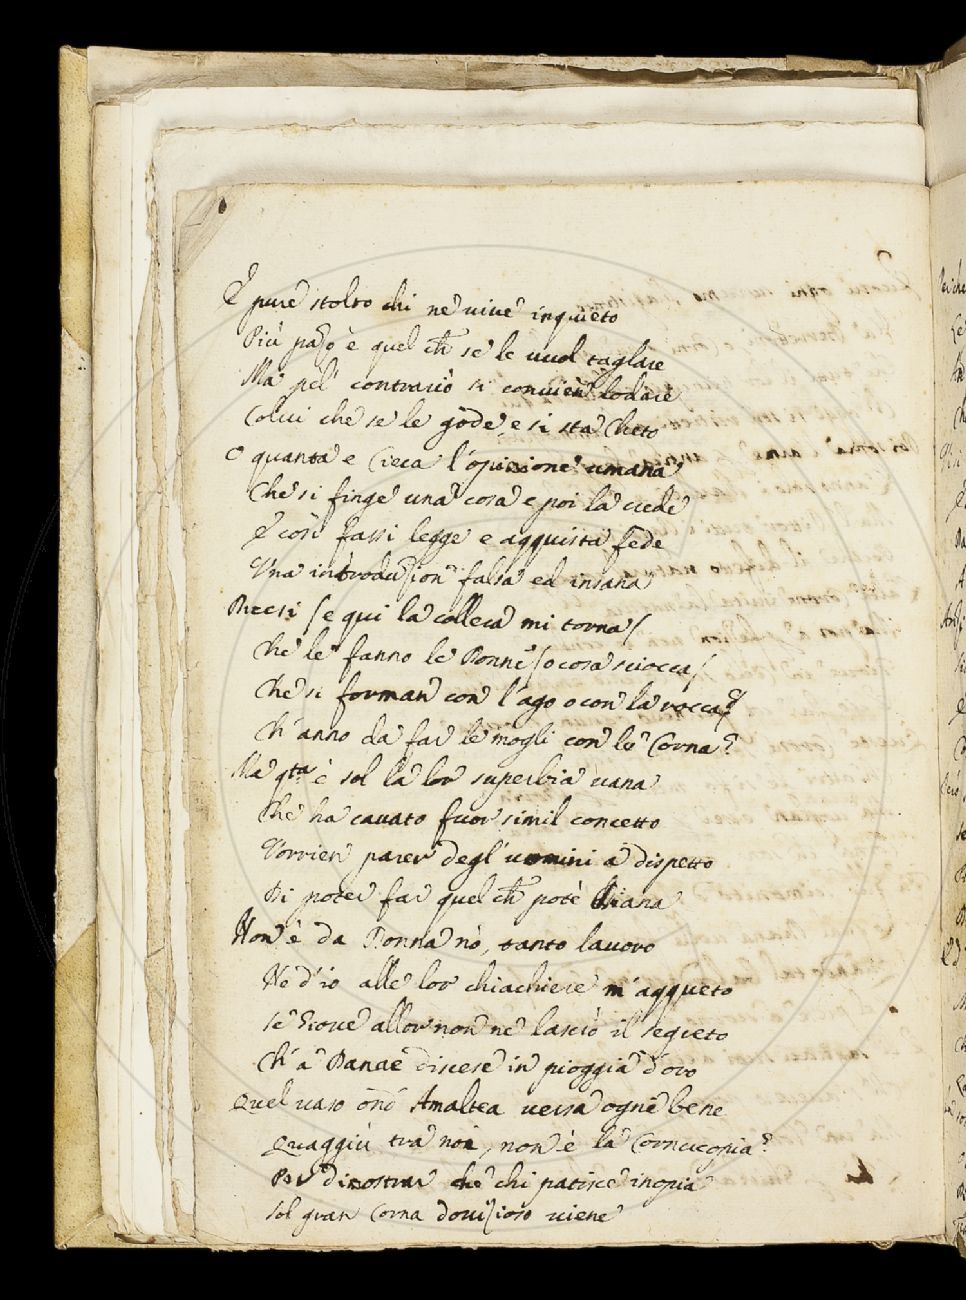 E pure stolto chi ne viue inquieto
Più pazzo è quel ch̃ se le vuol tagliare
Ma pel contrario si convien lodare
Colui che se le gode, e si sta cheto
O quanta e cieca l'opinione umana
Che si finge una cosa e poi la crede
E così fassi legge e acquista fede
Una introduzion falsa ed insana
Precsi (e qui la collera mi torna)
Che le fanno le Donne (o cosa sciocca)
Che si forman con l'ago o con la rocca?
Ch'anno da far le mogli con le Corna?
Ma qta è sol la lor superbia vana
Che ha cavato fuor simil concetto
Vorrien parer degl'uomini a dispetto
Di poter far quel ch̃ potè Diana
Non è da Donna nò, tanto lavoro
Nè d'io alle lor chiachiere m'acqueto
Se Giove allor non ne lasciò il segreto
Ch'a Danae discese in pioggia d'oro
Quel vaso ond' Amaltea versa ogni bene
Quaggiù tra noi, non è la Cornucopia?
Per dimostrar che chi patisce inopia
Sol gran Corna dovizioso viene